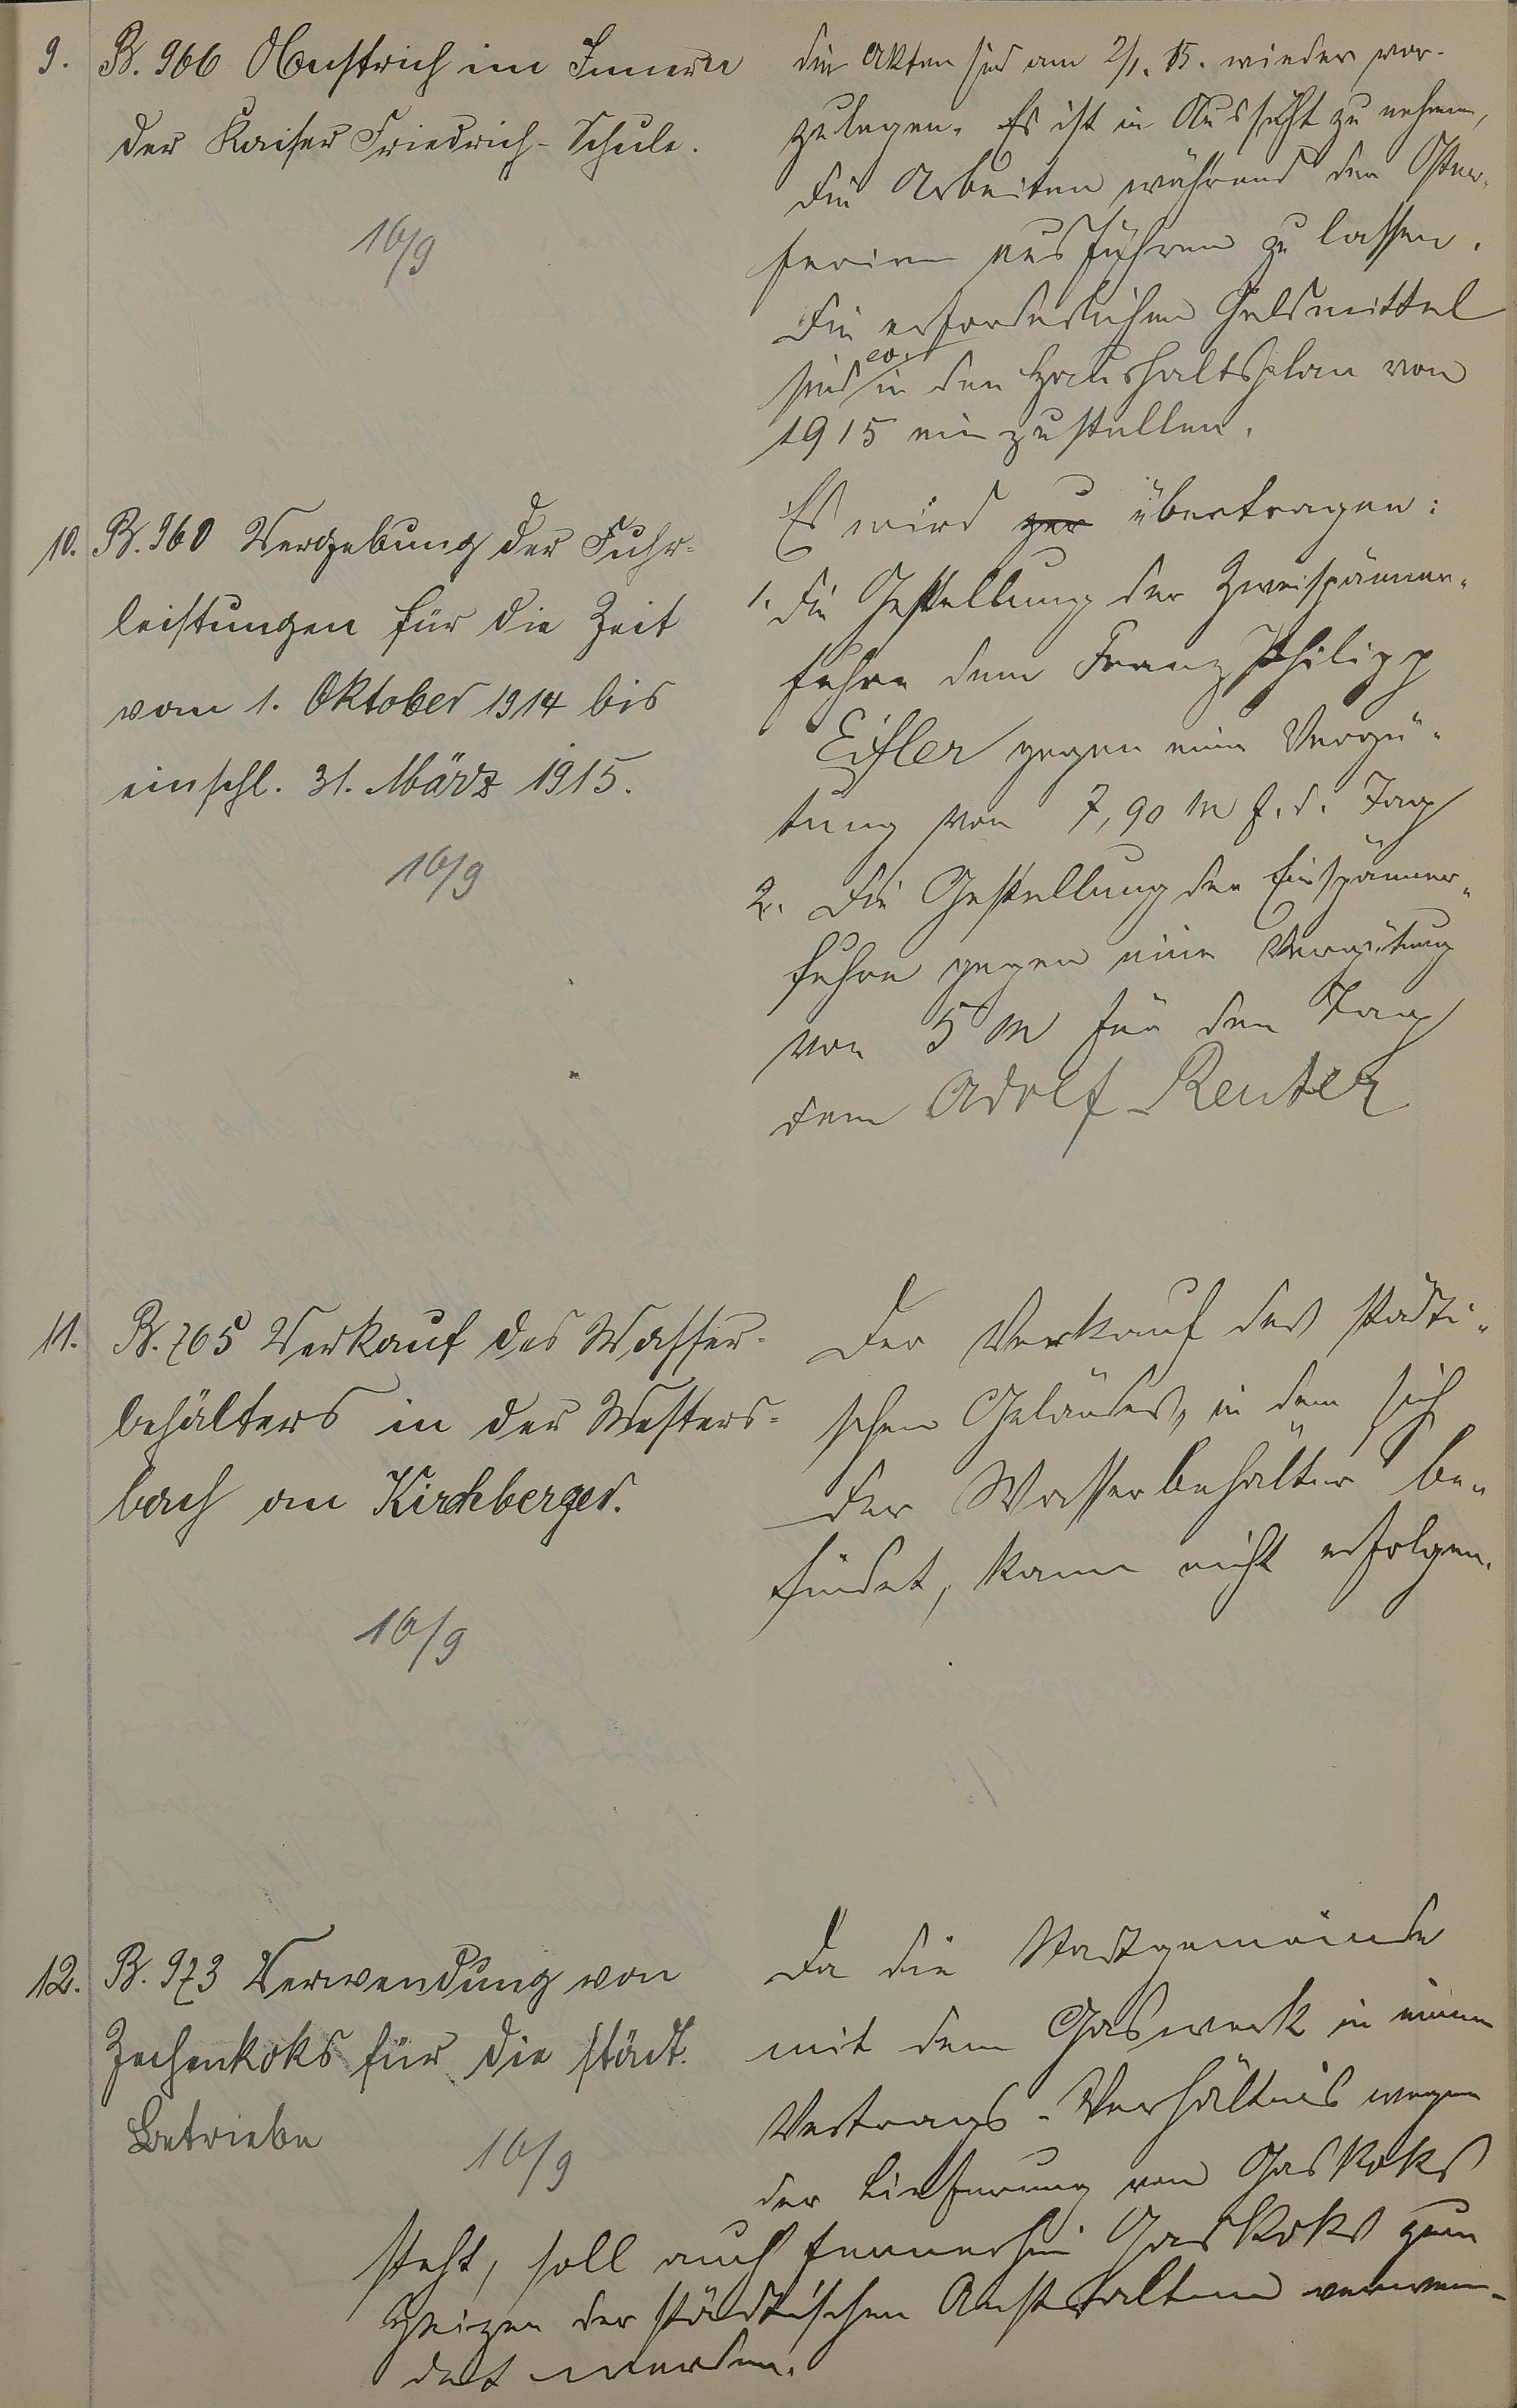 9. B. 966 Anstrich im Innern
der Kaiser Friedrich-Schule.
16/9
die Akten sind am 2/1. 15. wieder vor-
zulegen. Es ist in Aussicht zu nehmen,
die Arbeiten während der Oster-
ferien ausführen zu lassen.
Die erforderlichen Geldmittel
sind ev. in den Haushaltsplan von
1915 einzustellen.
10. B. 960 Vergebung der Fuhr-
leistungen für die Zeit
vom 1. Oktober 1914 bis
einschl. 31. März 1915.
16/9
Es wird zur übertragen:
1. die Gestellung der Zweispänner-
fuhre dem Franz Philipp
Eifler gegen eine Vergü-
tung von 7,90 M f. d. Tag
2. Die Gestellung der Einspänner-
fuhre gegen eine Vergütung
von 5 M für den Tag
dem Adolf Reuter
11. B. 765 Verkauf des Wasser-
behälters in der Westers-
bach an Kirchberger.
16/9
Der Verkauf des städti-
schen Geländes, in dem sich
der Wasserbehälter be-
findet, kann nicht erfolgen.
12. B. 973 Verwendung von
Zechenkoks für die städt.
Betriebe
16/9
Da die Stadtgemeinde
mit dem Gaswerk in einem
Vertrags-Verhältnis wegen
der Lieferung von Gaskoks
steht, soll auch fernerhin Gaskoks zum
Heizen der städtischen Anstalten verwen-
det werden.